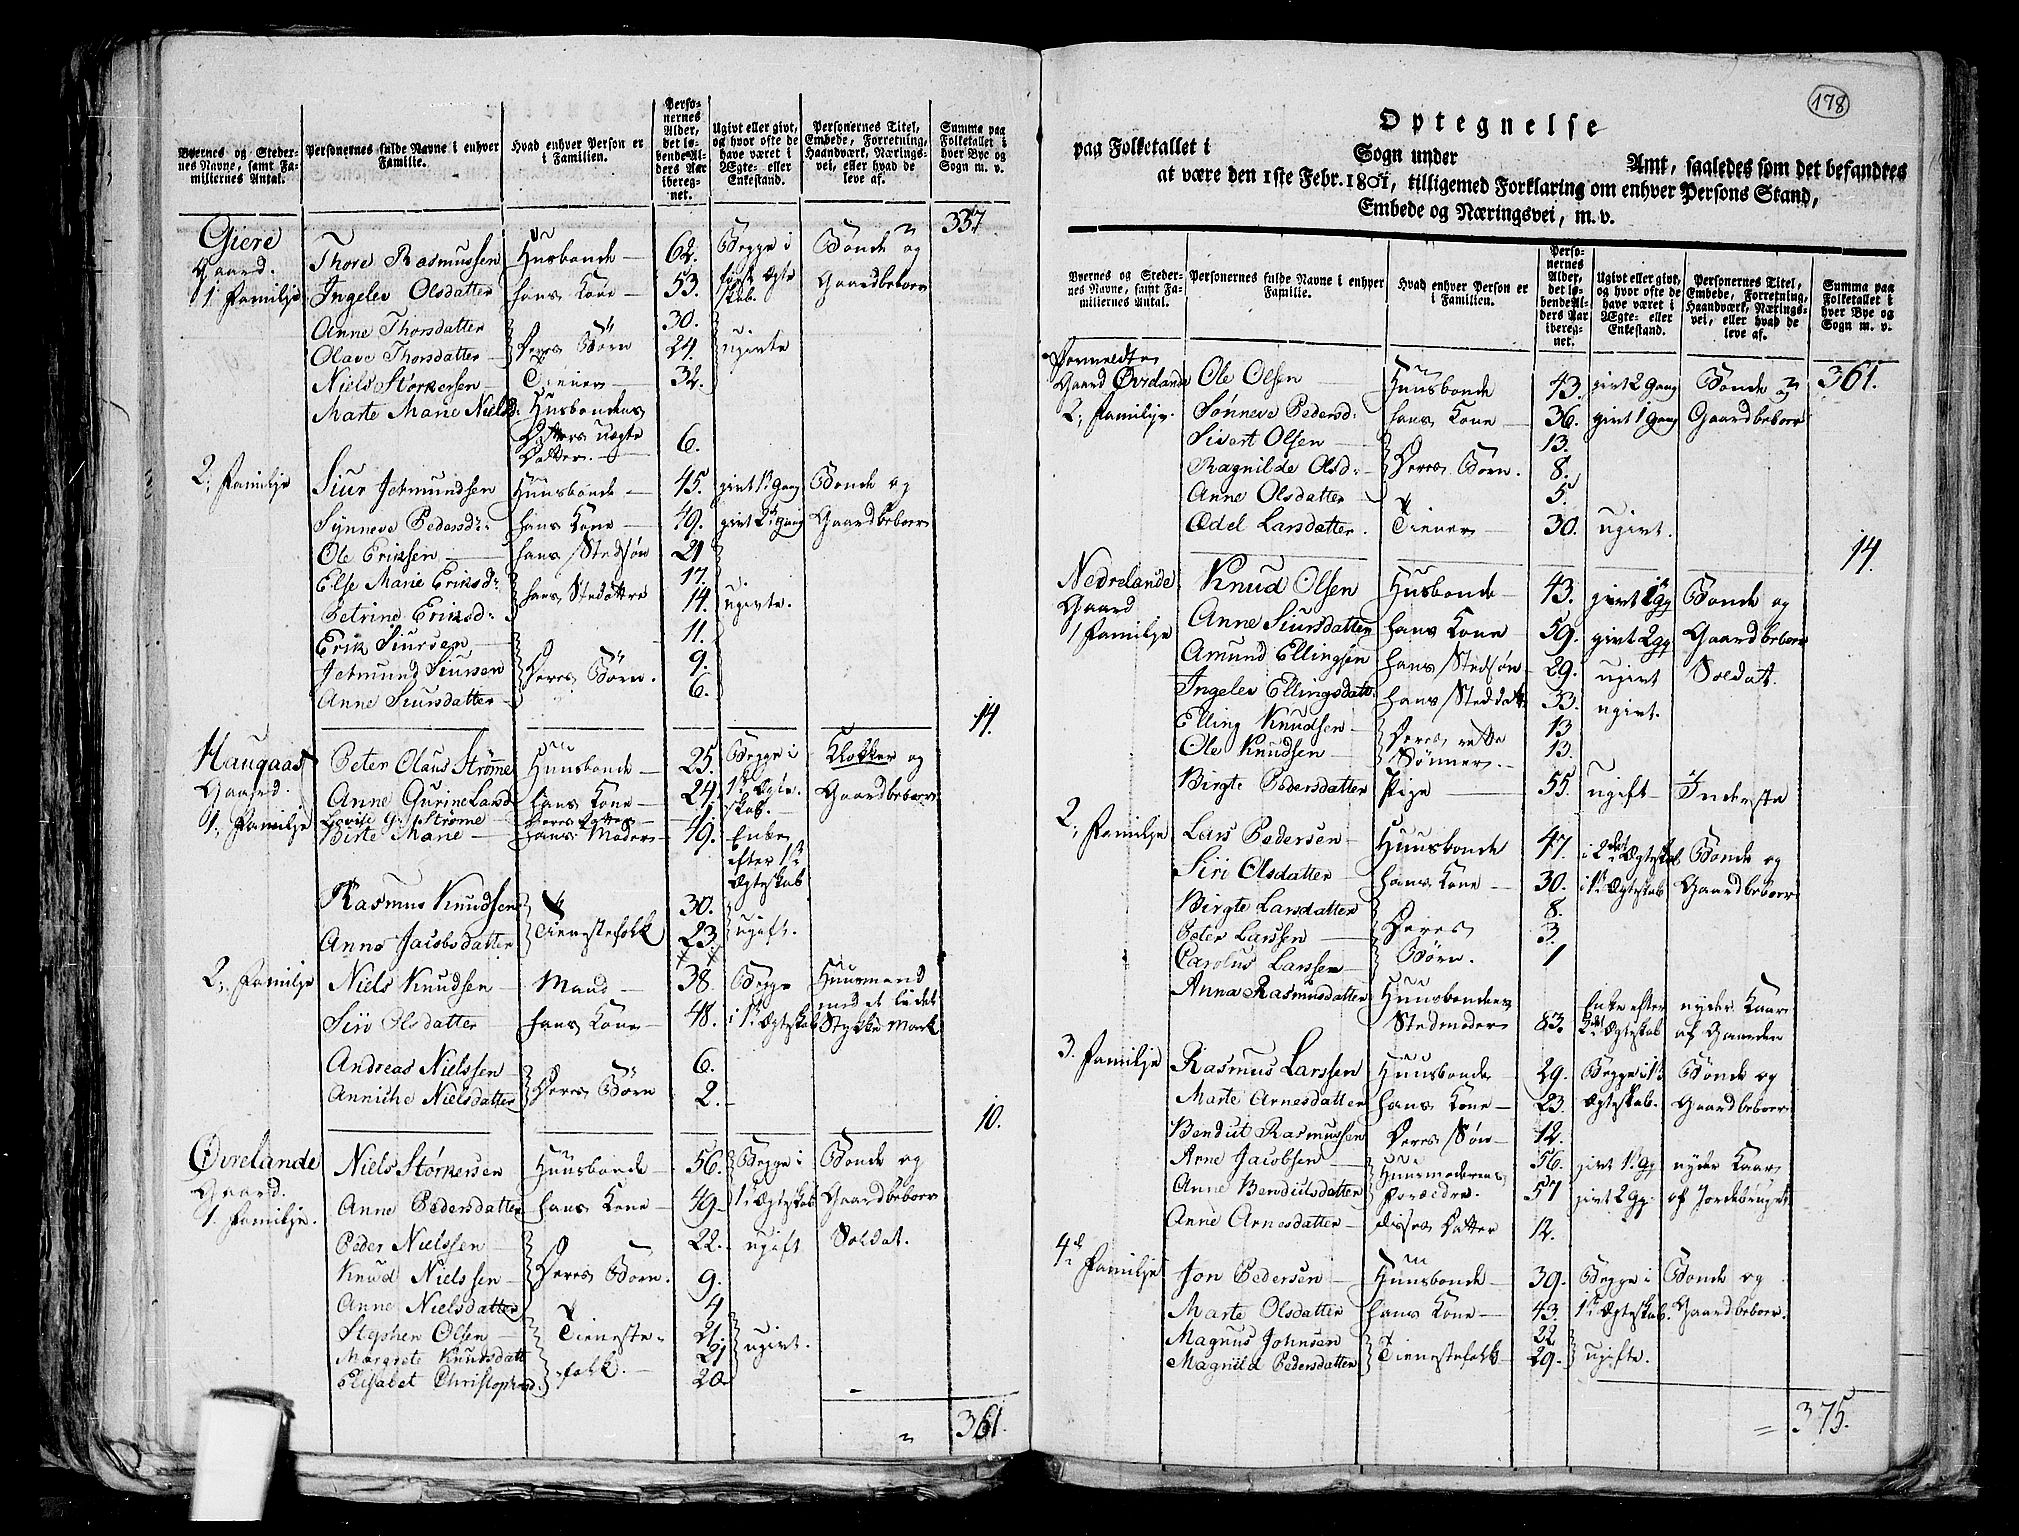 Byernes og Steder-
nes Navne, samt Fa-
miliernes Antal.
Personernes fulde Navne i enhver
Familie.
Hvad enhver Person er
i Familien.
Perso-
nernes
Alder,
det lø-
bende Al-
ders Aar
ibereg-
net.
Ugivt eller givt,
og hvor ofte de
have været i
Ægte- eller
Enkestand.
Personernes Titel,
Embede, Forretning,
Haandværk, Nærings-
vei, eller hvad de
leve af.
Summa paa
Folketallet i
hver Bye og
Sogn m. v.
337
Giere
Gaard.
1. Familje
Thore Rasmussen Husbonde 62. Begge i Bonde og
Ingelev Olsdatter hans Kone 53. første Ægte skab. Gaardbeboer
Anne Thorsdatter 30.
Olave Thorsdatter Deres Børn 24. ugivte
Niels Størkersen Tiener 32.
Marte Marie Nielsd: Husbondens
Datters uægte
Datter. 6.
2, Familje Siur Jetmundsen Huusbonde 45. givt 1. Gang Bonde og
Synneve Pedersd: hans Kone 49. givt 2. Gang Gaardbeboer
Ole Eriksen hans Stedsøn 21
Else Marie Eriksd: 17.
Petrine Eriksd: hans Stedøttre 14. ugivte.
Erik Siursen 11.
Jetmund Siursen Deres Børn. 9.
Anne Siursdatter 6.
14.
Haugaas
Gaard.
1. Familje
Peter Olaus Strømme Huusbonde 25. Begge i Klokker og
Anne Gurine Larsd hans Kone 24. 1. Ægte- skab. Gaardbeboer
Lovise G. Strøme Deres Datter 1
Birte Marie hans Moder 49. Enke
efter 1.
Ægteskab
Rasmus Knudsen 30.
Anne Jacobsdatter Tienestefolk 23. ugift.
2. Familje Niels Knudsen Mand 38. Begge Huusmand
Siri Olsdatter hans Kone 48. i 1. Ægteskab med et lidet
Stykke Mark
Andreas Nielssen 6.
Anniche Nielsdatter Deres Børn 2.
10.
Øvrelande
Gaard.
1. Familje.
Niels Størkersen Huusbonde 56. Begge i Bonde og
Anne Pedersdatter hans Kone 49 1. Ægteskab Gaardbeboer
Peder Nielssen 22. ugift Soldat.
Knud Nielssen Deres Børn. 9.
Anne Nielsdatter 4
Stephen Olsen Tieneste- 21.
Margrete Knudsdatt 21 ugivt.
Elisabet Christophersd. folk. 20
361.
178
Optegnelse
paa Folketallet i Sogn under Amt, saaledes som det befandtes
at være den 1ste Febr. 1801, tilligemed Forklaring om enhver Persons Stand,
Embede og Næringsvei, m. v.
Byernes og Steder-
nes Navne, samt Fa-
miliernes Antal.
Personernes fulde Navne i enhver
Familie.
Hvad enhver Person er
i Familien.
Perso-
nernes
Alder,
det lø-
bende Al-
ders Aar
ibereg-
net.
Ugivt eller givt,
og hvor ofte de
have været i
Ægte- eller
Enkestand.
Personernes Titel,
Embede, Forretning,
Haandværk, Nærings-
vei, eller hvad de
leve af.
Summa paa
Folketallet i
hver Bye og
Sogn m. v.
361.
Formeldte
Gaard Øvrelande
2, Familje.
Ole Olsen Huusbonde 43. givt 2 Gang Bonde og
Sønneve Pedersd: hans Kone 36. givt 1 Gang Gaardbeboer
Sivert Olsen 13.
Ragnilde Olsd: Deres Børn. 8.
Anne Olsdatter 5.
Ædel Larsdatter. Tiener 30. ugivt.
14.
Nedrelande
Gaard
1 Familje
Knud Olsen Husbonde 43. givt 1 Gg Bonde og
Anne Siursdatter hans Kone 59. givt 2 Gg Gaardbeboer
Amund Ellingsen hans Stedsøn 29. ugivt Soldatt.
Ingelev Ellingsdatt. hans Steddatt 33. ugivt.
Elling Knudsen Deres ægte 13
Ole Knudsen Sønner. 13.
Birgte Pedersdatter Pige 55. ugift Inderste
2, Familje Lars Pedersen Huusbonde 47. i 2det Ægteskab Bonde og
Siri Olsdatter hans Kone 30. i 1. Ægteskab Gaardbeboer
Birgte Larsdatter 8.
Peder Larssen Deres 3.
Carolus Larssen Børn. 1
Anna Rasmusdatter Huusbondens
Stedmoder 83. Enke efter 2det Ægteskab nyder Kaar
af Gaarden
3. Familje Rasmus Larssen Huusbonde 29. Begge i 1. Bonde og
Marte Arnesdatter hans Kone 23. Ægteskab. Gaardbeboer
Bendut Rasmussen Deres Søn 12.
Arne Jacobsen Huusmoderens 56. givt 1. Gg nyder Kaar
Anne Bendutsdatter Forældre. 57 givt 2 Gg. af Jordebruget
Anne Arnesdatter disses Datter 12.
4. Familje Jon Pedersen Huusbonde 39. Begge i Bonde og
Marte Olsdatter hans Kone 43. 1. Ægteskab. Gaardbeboer.
Magnus Johnsen 22
Magnild Pedersdatter Tienestefolk 29. ugifte.
375.